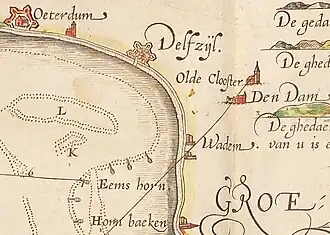 Oeterdum
De geda
Delfzijl.
De ghedae
Olde Clooster
Den Dam
De ghedae
L
van u is e
K
Wadem
6
Eems horn
GROE
Horn baeken